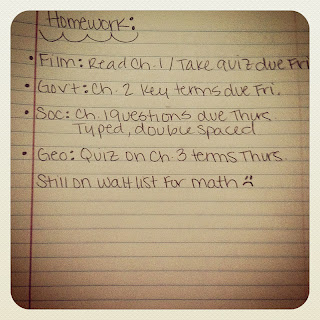 Homework:
• Film: Read Ch. 1 / Take quiz due Fri
• Gov't: Ch. 2 key terms due Fri.
• Soc: Ch. 1 Questions due Thurs.
Typed, double spaced
• Geo: Quiz on Ch. 3 terms Thurs.
Still on wait list for math ☹